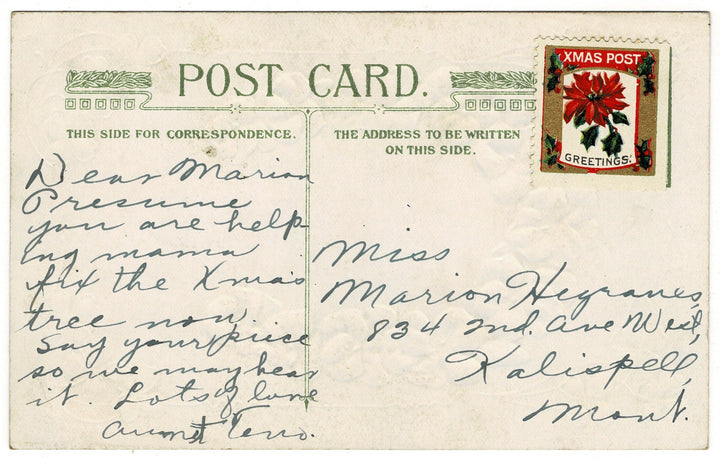 POST CARD.
THIS SIDE FOR CORRESPONDENCE.
THE ADDRESS TO BE WRITTEN
ON THIS SIDE.
XMAS POST
GREETINGS.
Dear Marion
Presume
you are help-
ing mama
fix the Xmas
tree now.
Say your piece
so we may hear
it. Lots of love
Aunt
Miss
Marion Hegranes,
834 2nd. Ave West,
Kalispell,
Mont.